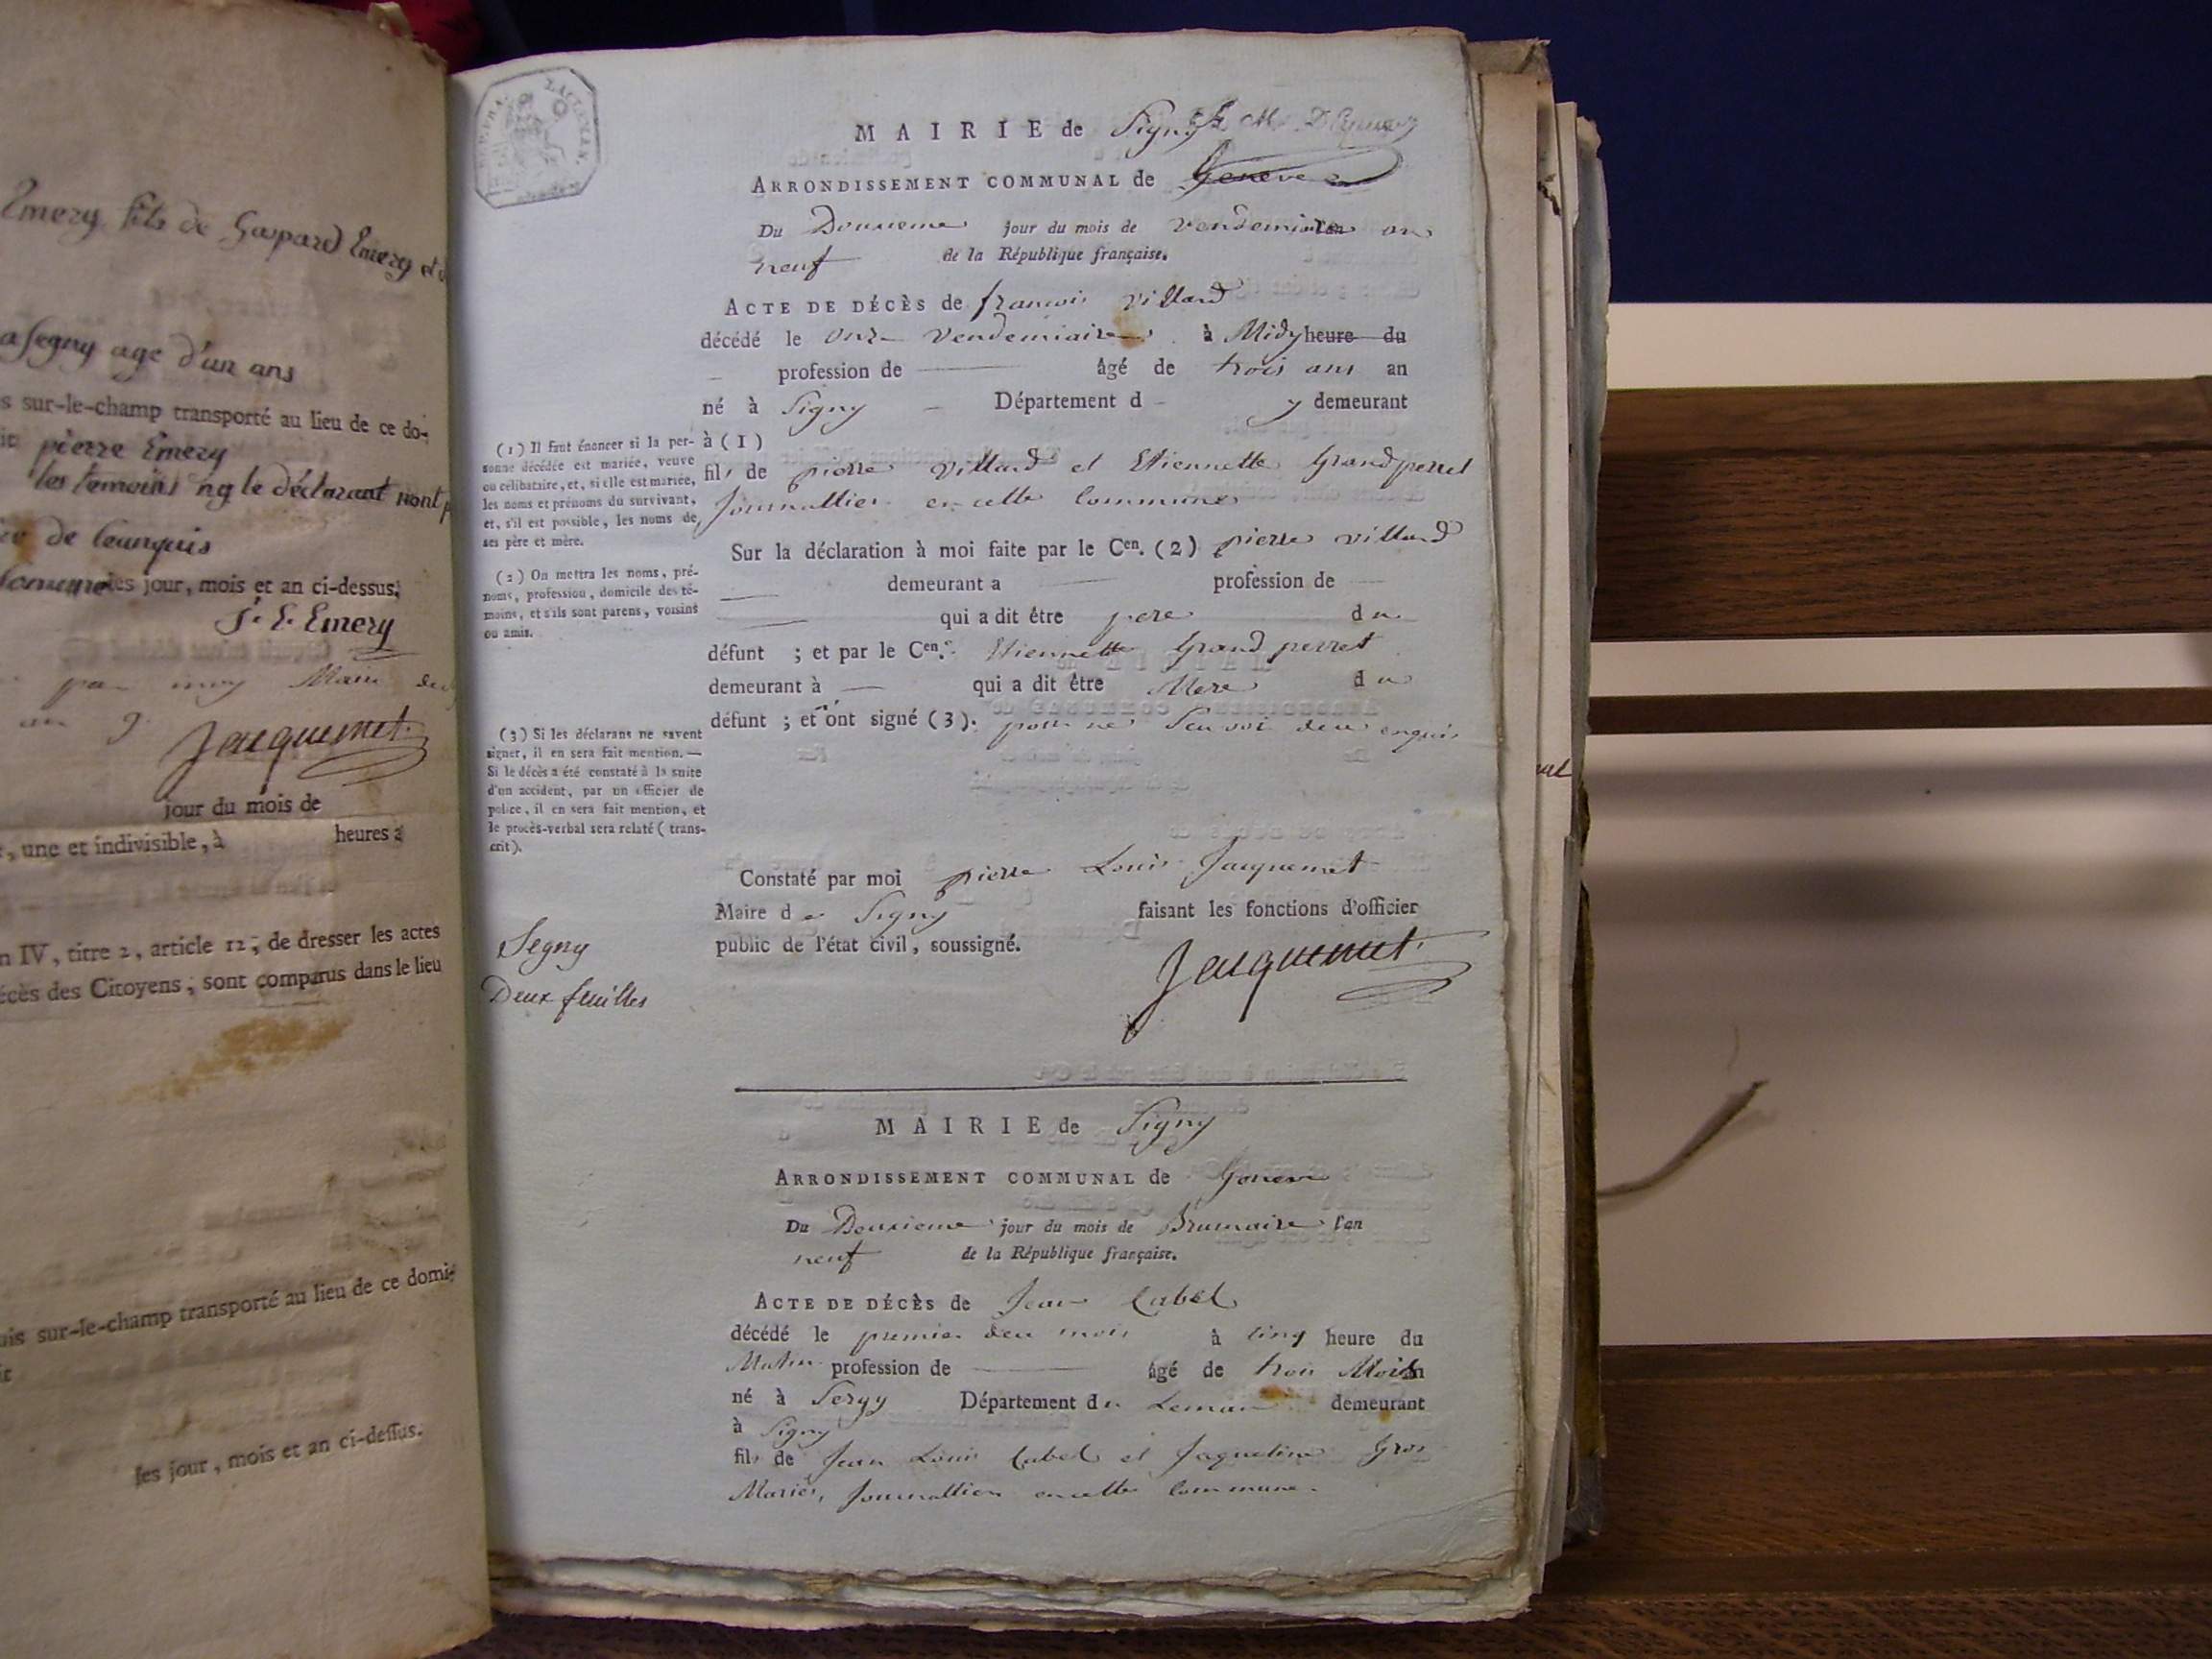 Emery fils de Gaspard Emery et
a Segny age d'un ans
s sur-le-champ transporté au lieu de ce do-
pierre Emery
les temoins ny le déclarant nont p
de leanquis
les jour, mois et an ci-dessus.
Emery
par moy Maire
an 9.
Jacquemet
jour du mois de
, une et indivisible, à heures a
n IV, titre 2, article 12, de dresser les actes
écès des Citoyens, sont comparus dans le lieu
uis sur-le-champ transporté au lieu de ce domi-
it
ses jour, mois et an ci-dessus.
LEMAN.
MAIRIE de Signy
ARRONDISSEMENT COMMUNAL de Geneve
Du Douxieme jour du mois de Vendemiaire an
neuf de la République française.
ACTE DE DÉCÈS de francois Villard
décédé le onze Vendemiaire à Midy heure du
profession de âgé de trois ans an
né à Signy Département d y demeurant
à (1)
fils de pierre Villard et Etiennette Grandperret
Journallier en cette Commune
Sur la déclaration à moi faite par le Cen. (2) pierre villard
demeurant a profession de
qui a dit être pere du
défunt ; et par le Cen. Etiennette Grand perret
demeurant à qui a dit être Mere du
défunt ; et n'ont signé (3). pour ne Scavoir de ce enquis
(1) Il faut énoncer si la per-
sonne décédée est mariée, veuve
ou célibataire, et, si elle est mariée,
les noms et prénoms du survivant,
et, s'il est possible, les noms de
ses père et mère.
(2) On mettra les noms, pré-
noms, profession, domicile des té-
moins, et s'ils sont parens, voisins
ou amis.
(3) Si les déclarans ne savent
signer, il en sera fait mention. —
Si le décès a été constaté à la suite
d'un accident, par un officier de
police, il en sera fait mention, et
le procès-verbal sera relaté (trans-
crit).
Constaté par moi pierre Louis Jacquemet
Maire de Signy faisant les fonctions d'officier
public de l'état civil, soussigné.
Jacquemet
Segny
Deux feuilles
MAIRIE de Signy
ARRONDISSEMENT COMMUNAL de Geneve
Du Deuxieme jour du mois de Brumaire l'an
neuf de la République française.
ACTE DE DÉCÈS de Jean Cabel
décédé le premier deu mois à cinq heure du
Matin profession de âgé de trois Mois an
né à Sergy Département du Leman demeurant
à Signy
fils de Jean Louis Cabel et Jaqueline Gros
Mariés, Journallier en cette Commune.